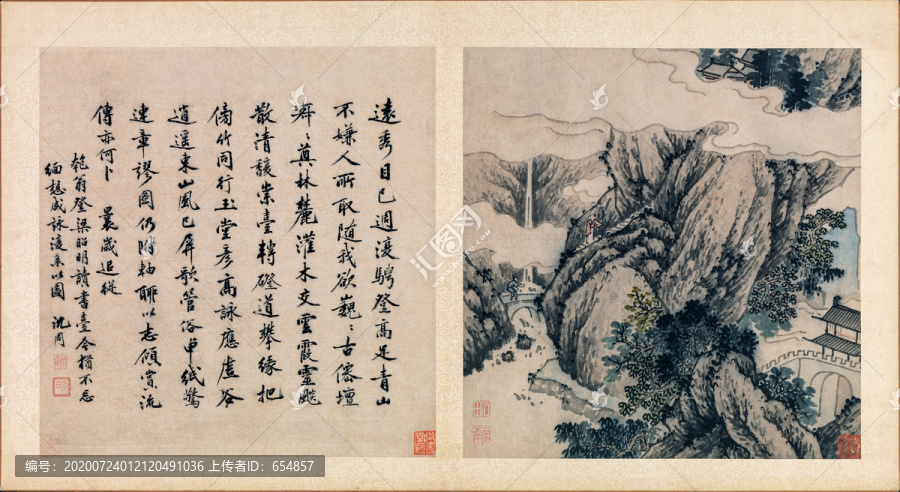 遠秀目已週復騁登高足青山
不嫌人所取隨我欲巍〻古儒壇
漭〻蓂林麓灌木交雲霞靈飈
散清馥崇臺轉磴道攀緣把
脩竹同行玉堂彥高詠應虛谷
逍遥東山風已屏歌管俗申紙驚
連章謬同仍賡軸聊以志傾賞流
傳亦何卜
曩歲追從
匏翁登梁昭明讀書臺今猶不忘
緬想成詠復系以圖
沈周
编号：20200724012120491036 上传者ID：654857